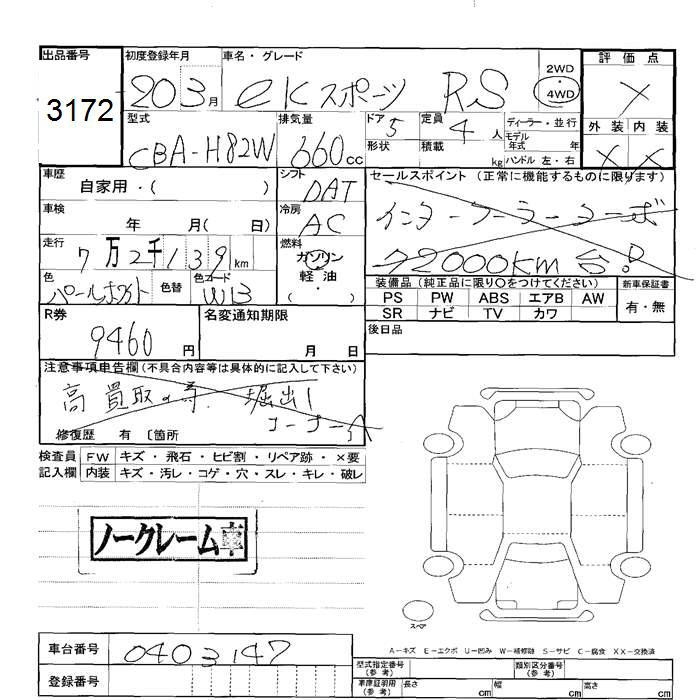 出品番号 初度登録年月 車名・グレード 2WD 評価点
3172 20 3月 eKスポーツ RS ・ 4WD ×
型式 排気量 ドア 5 定員 4人 ディーラー・並行 外装 内装
CBA-H82W 660cc 形状 積載 kg モデル年式 年 × ×
ハンドル 左・右
車歴 シフト セールスポイント (正常に機能するものに限ります)
自家用・( ) DAT インタークーラーターボ
車検 冷房
年 月( 日) AC 72000km台!
走行 燃料
7万2千139km ガソリン
色 色替 色コード ・ 装備品 (純正品に限り○をつけてください) 新車保証書
パールホワイト W13 軽油 PS PW ABS エアB AW 有・無
( ) SR ナビ TV カワ
R券 名変通知期限 後日品
9460円 月 日
注意事項申告欄 (不具合内容等は具体的に記入して下さい)
高買取 堀出し
コーナー
修復歴 有 〔箇所
検査員 FW キズ・飛石・ヒビ割・リペア跡・×要
記入欄 内装 キズ・汚レ・コゲ・穴・スレ・キレ・破レ
ノークレーム車
スペア
A−キズ E−エクボ U−凹み W−補修跡 S−サビ C−腐食 XX−交換済
車台番号 0403147 型式指定番号 (参考) 類別区分番号 (参考)
登録番号 車庫証明用 (参考) 長さ cm 幅 cm 高さ cm